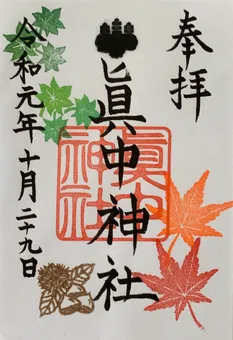 奉拝
眞中神社
眞中神社
令和元年十月二十九日